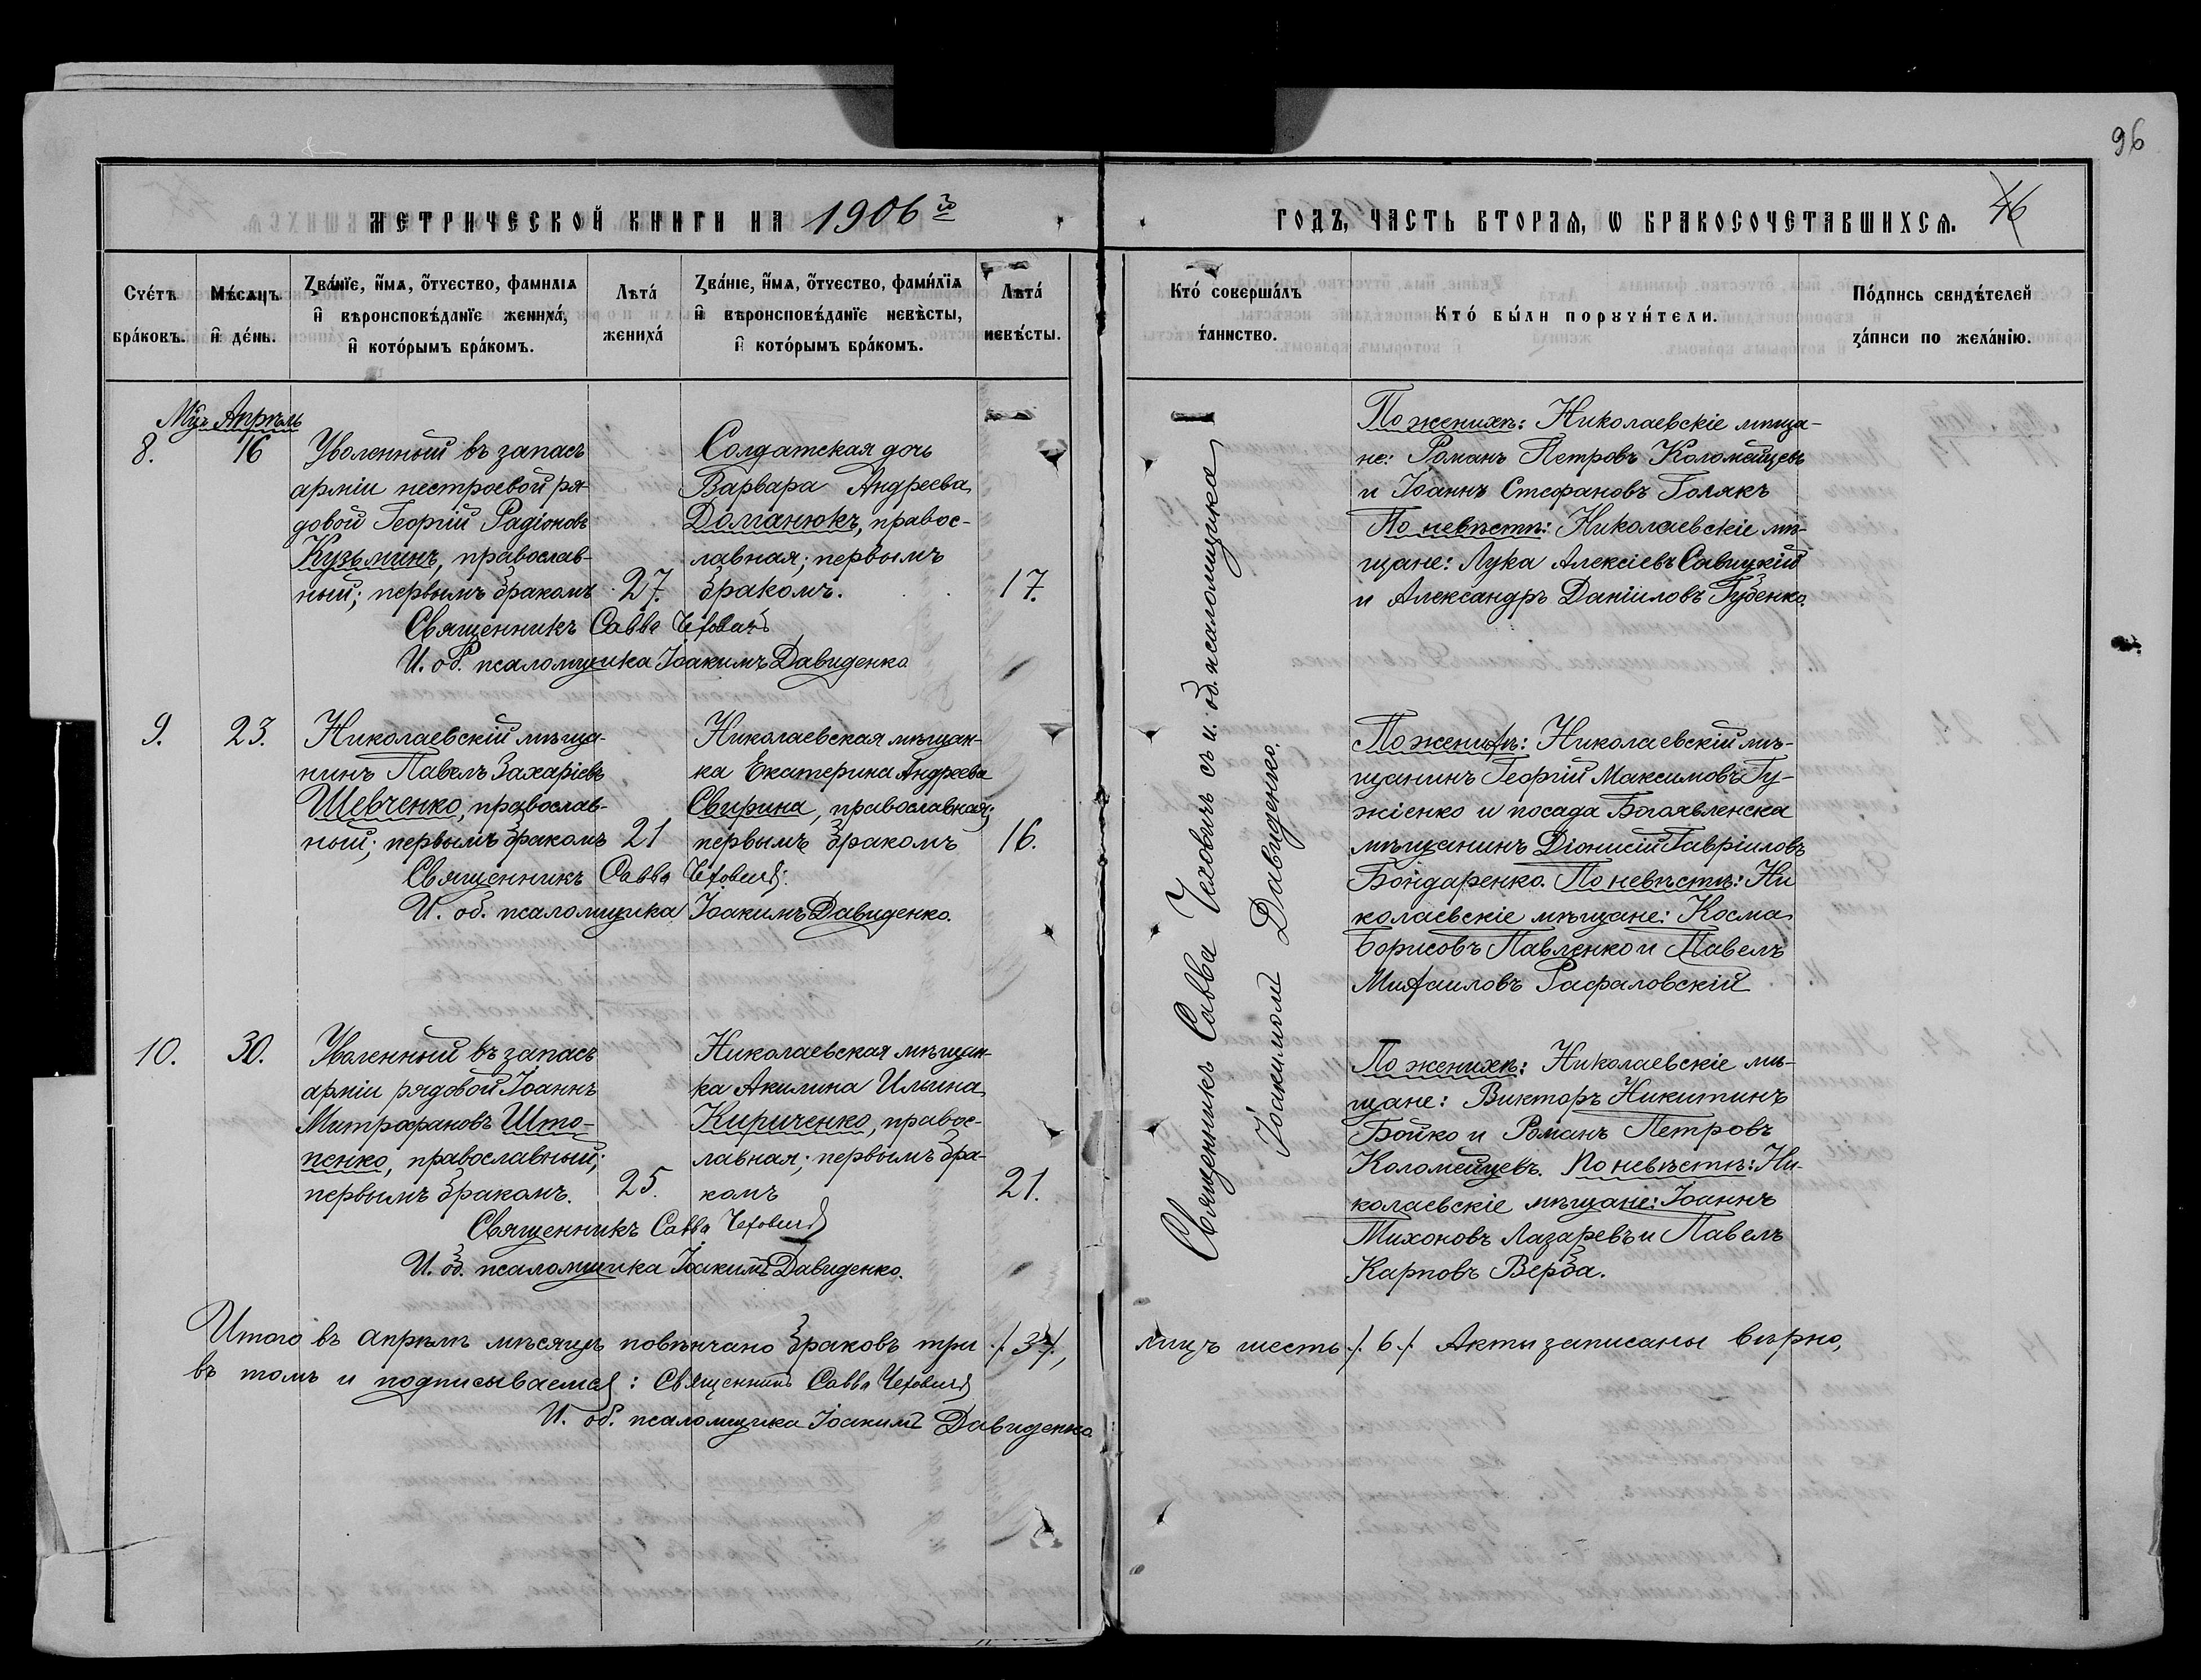 96
46
МЕТРИЧЕСКОЙ КНИГИ НА 1906 й
ГОДЪ, ЧАСТЬ ВТОРАѦ, Ѡ БРАКОСОЧЕТАВШИХСѦ.
Сче́тъ
бра́ковъ.
Мѣ́сѧцъ
и҆ де́нь.
Зва́нїе, и҆́мѧ, ѻ҆́тчество, фамилїѧ
и҆ вѣроисповѣ́данїе жениха́,
и҆ кото́рымъ бра́комъ.
Лѣта́
жениха́
Зва́нїе, и҆́мѧ, ѻ҆́тчество, фами́лїѧ
и҆ вѣроисповѣ́данїе невѣ́сты,
и҆ кото́рымъ бра́комъ.
Лѣта́
невѣ́сты.
Кто́ соверша́лъ
та́инство.
Кто́ бы́ли порꙋчи́тели.
По́дпись свидѣ́телей
за́писи по жела́нїю.
Мцъ Апрѣль
8.
16
Уволенный въ запасъ
арміи нестроевой ря-
довой Георгій Радіоновъ
Кузьминъ, православ-
ный; первымъ бракомъ
27.
Солдатская дочь
Варвара Андреева
Доманюкъ, правос-
лавная; первымъ
бракомъ.
17.
Священникъ Савва Чехович
И. об. псаломщика Іоакимъ Давиденко
По женихѣ: Николаевскіе мѣща-
не: Романъ Петровъ Коломейцевъ
и Іоаннъ Стефановъ Голякъ
По невѣстѣ: Николаевскіе мѣ-
щане: Лука Алексіевъ Савицкій
и Александръ Даніиловъ Губенко.
9.
23.
Николаевскій мѣща-
нинъ Павелъ Захаріевъ
Шевченко, православ-
ный; первымъ бракомъ
21
Николаевская мѣщан-
ка Екатерина Андреева
Свирина, православная;
первымъ бракомъ
16.
Священникъ Савва Чехович
И. об. псаломщика Іоакимъ Давиденко.
По женихѣ: Николаевскій мѣ-
щанинъ Георгій Максимовъ Гу-
жіенко и посада Богоявленска
мѣщанинъ Діонисій Гавріиловъ
Бондаренко. По невѣстѣ: Ни
колаевскіе мѣщане: Косма
Борисовъ Павленко и Павелъ
Михаиловъ Рафаловскій
10.
30.
Уволенный въ запасъ
арміи рядовой Іоаннъ
Митрофановъ Што-
пенко, православный;
первымъ бракомъ.
25.
Николаевская мѣщан-
ка Акилина Ильина
Кириченко, правос-
лавная; первымъ бра-
комъ
21.
Священникъ Савва Чехович
И. об. псаломщика Іоакимъ Давиденко.
По женихѣ: Николаевскіе мѣ-
щане: Викторъ Никитинъ
Бойко и Романъ Петровъ
Коломейцевъ. По невѣстѣ: Ни-
колаевскіе мѣщане: Іоаннъ
Тихоновъ Лазаревъ и Павелъ
Карповъ Верба.
Священникъ Савва Чеховичъ съ и. об. псаломщика
Іоакимомъ Давиденко.
Итого въ апрѣлѣ мѣсяцѣ повѣнчано браковъ три ./.3./., лицъ шесть ./.6./. Акты записаны вѣрно,
въ томъ и подписываемся: Священникъ Савва Чехович
И. об. псаломщика Іоакимъ Давиденко